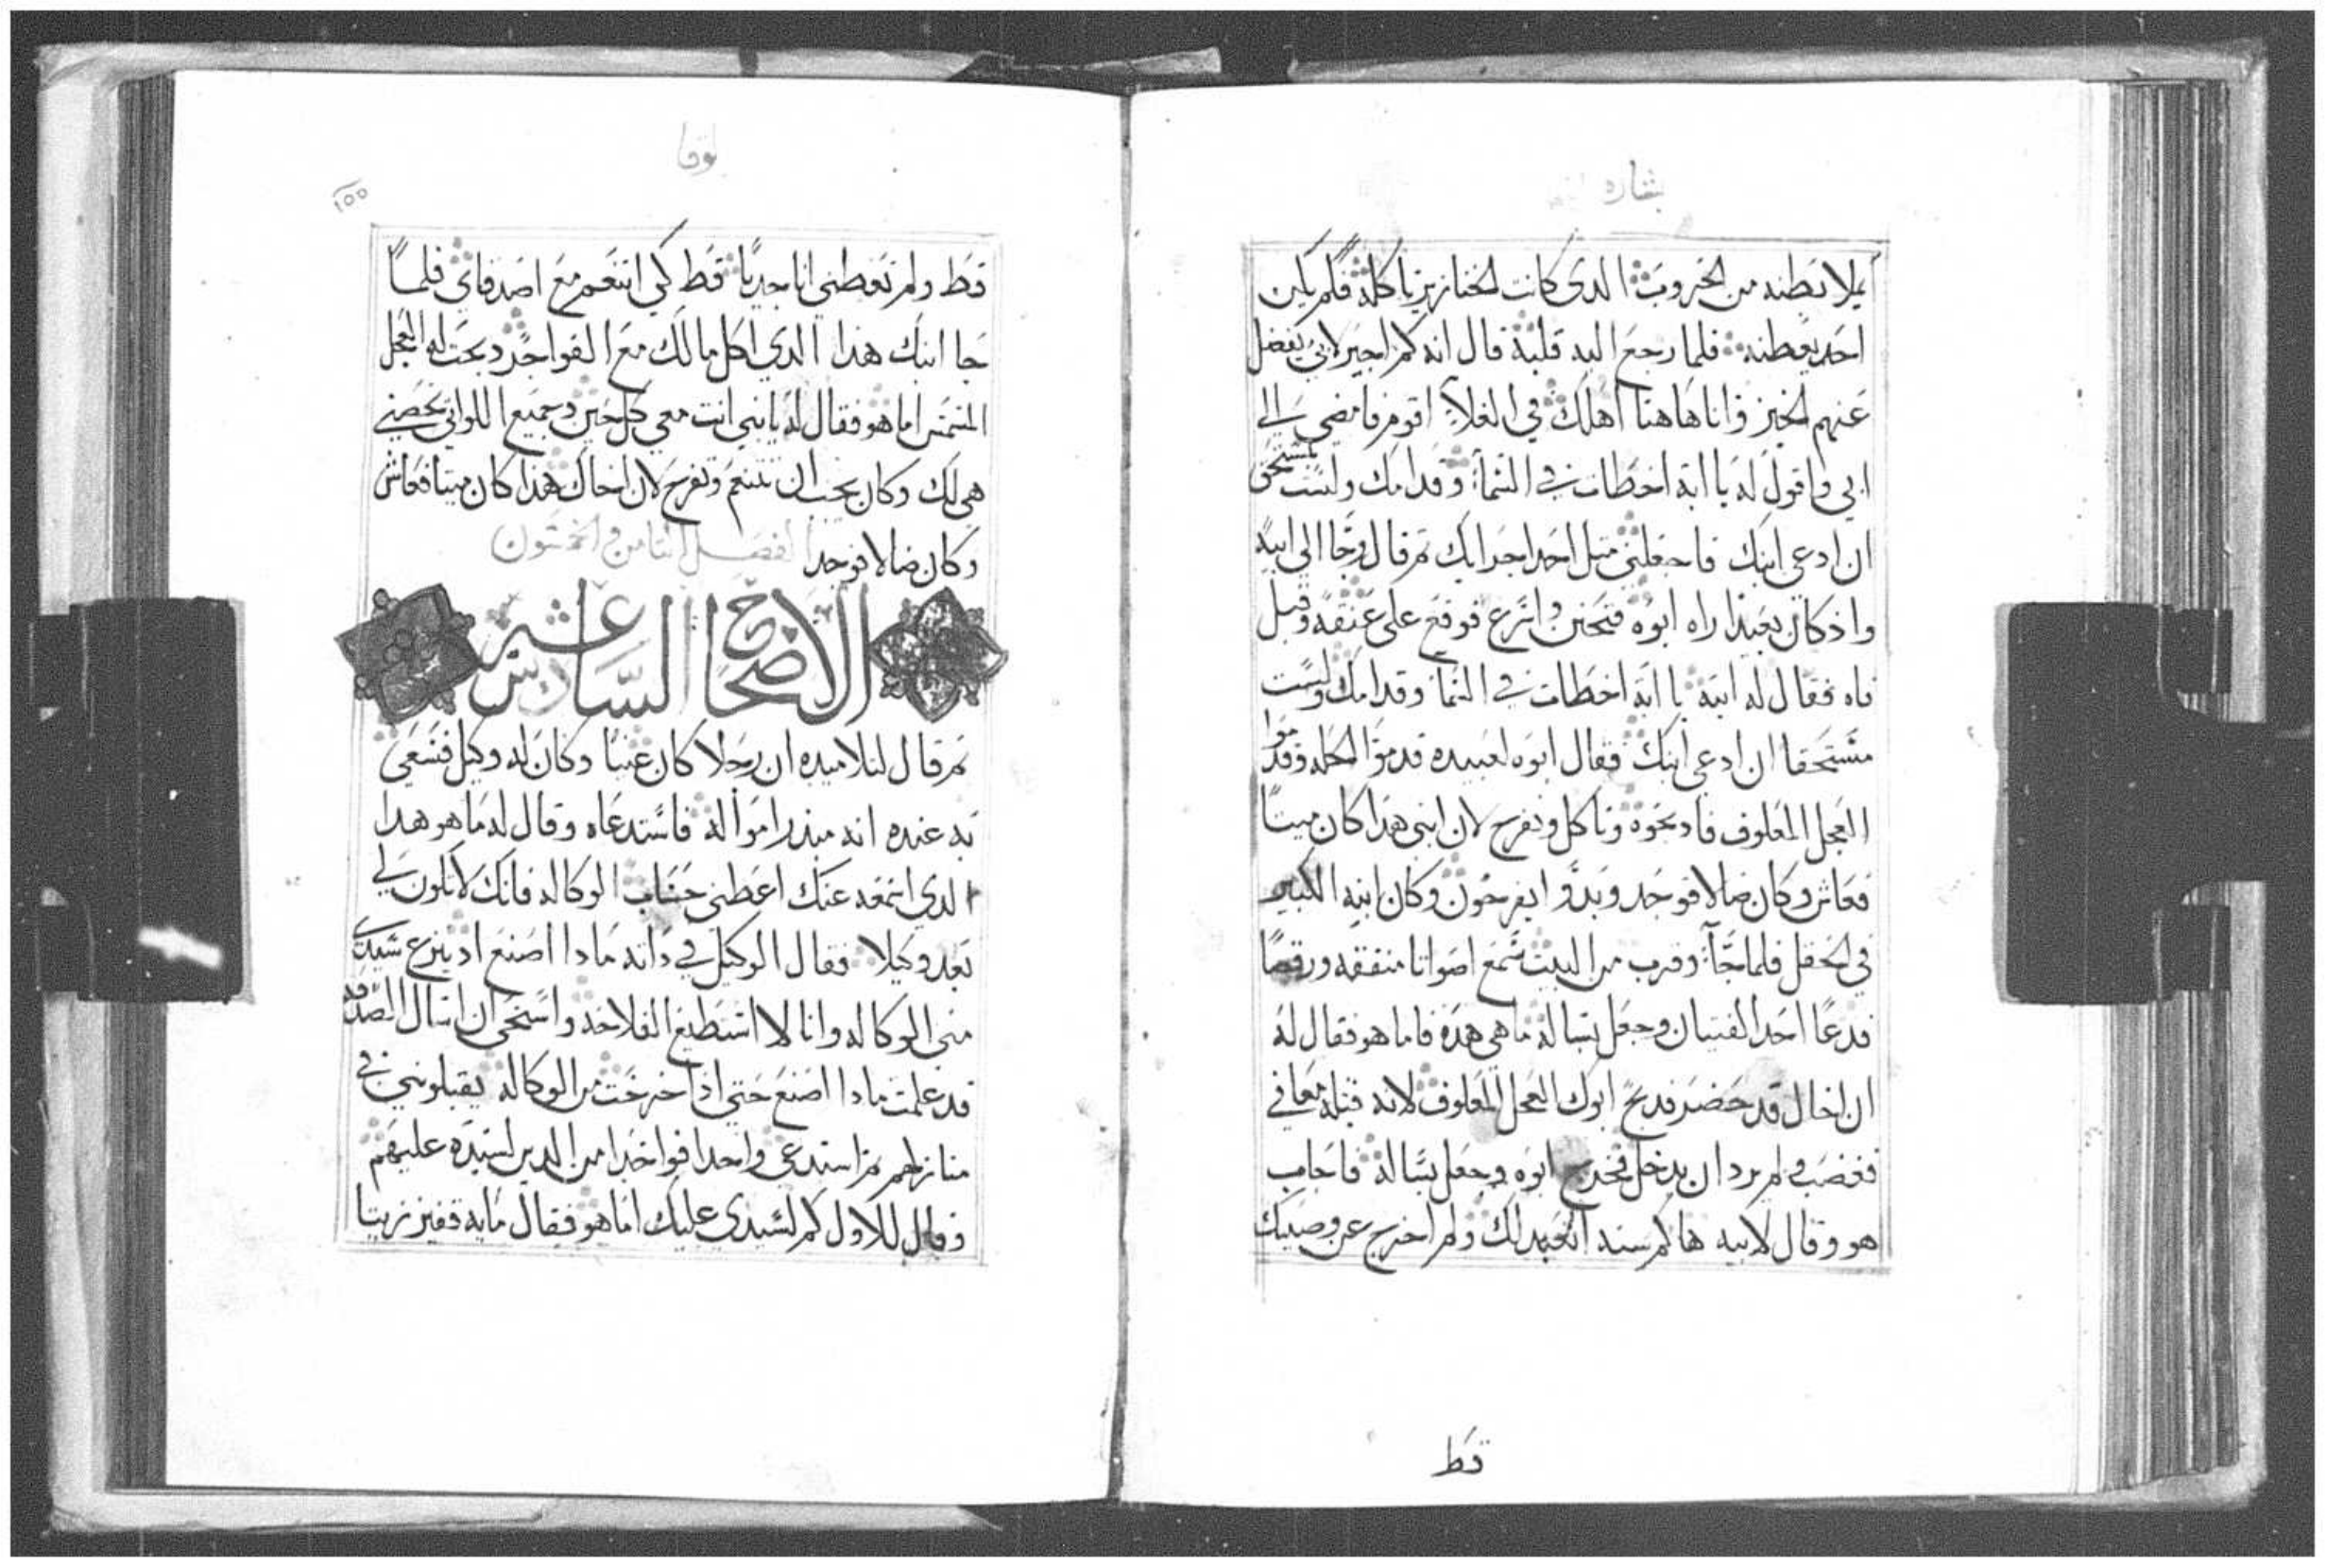 بشاره
يملا بطنه من الخروب الدى كانت الخنازير تاكله فلم يكن
احد يعطيه فلما رجع اليه قلبه قال انه كم اجير لابي يفضل
عنهم الخبز وانا هاهنا اهلك في الغلاء اقوم فامضي الى
ابي واقول له يا ابة اخطات في السما وقدامك ولست مستحق
ان ادعي ابنك فاجعلني متل احد اجرايك تم قال وجا الى ابيه
واذ كان بعيدا راه ابوه فتحنن واسرع فوقع على عنقه وقبل
فاه فقال له ابنه يا ابة اخطات في السما وقدامك ولست
مستحقا ان ادعي ابنك فقال ابوه لعبيده قدموا الحله وقدموا
العجل المعلوف فادبحوه وناكل ونفرح لان ابني هدا كان ميتا
فعاش وكان ضالا فوجد وبدوا يفرحون وكان ابنه الكبير
في الحقل فلما جا وقرب من البيت سمع اصواتا متفقه ورقصا
فدعا احد الفتيان وجعل يساله ما هي هده فاما هو فقال له
ان اخاك قد حضر فدبح ابوك العجل المعلوف لانه قبله معافي
فغضب ولم يرد ان يدخل فخرج ابوه وجعل يساله فاجاب
هو وقال لابيه ها كم سنه اتعبد لك ولم اخرج عن وصيتك
قط
لوقا
١٥٥
قط ولم تعطني انا جديا قط كي اتنعم مع اصدقاي فلما
جا ابنك هدا الدي اكل مالك مع الفواجر دبحت له العجل
المسمن اما هو فقال له يا بني انت معي كل حين وجميع اللواتي تخصني
هي لك وكان يجب ان نتنعم ونفرح لان اخاك هدا كان ميتا فعاش
وكان ضالا فوجد الفصل التامن والخمسون
الاصحاح السادس عشر
تم قال لتلاميده ان رجلا كان غنيا وكان له وكيل فسعى
به عنده انه مبذر امواله فاستدعاه وقال له ما هو هدا
الدي اسمعه عنك اعطني حساب الوكاله فانك لا تكون لي
بعد وكيلا فقال الوكيل في داته مادا اصنع اد ينزع سيدي
مني الوكاله وانا لا استطيع الفلاحه واستحي ان اسال الصدقه
قد علمت مادا اصنع حتي ادا خرجت من الوكاله يقبلونني في
منازلهم تم استدعي واحدا فواحدا من الدين لسيده عليهم
وقال للاول كم لسيدي عليك اما هو فقال مايه قفيز زيتا